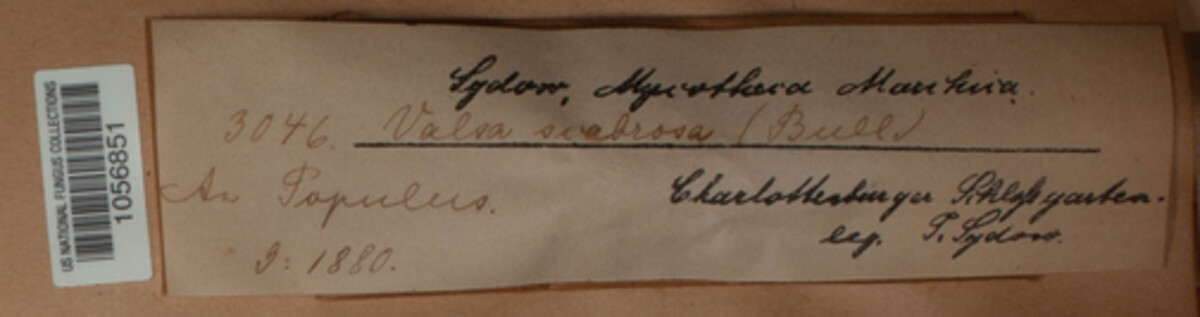 US NATIONAL FUNGUS COLLECTIONS
1056851
Sydow, Mycotheca Marchica.
3046. Valsa scabrosa (Bull.)
An Populus.
Charlottenburger Schloßgarten.
9: 1880.
leg. P. Sydow.